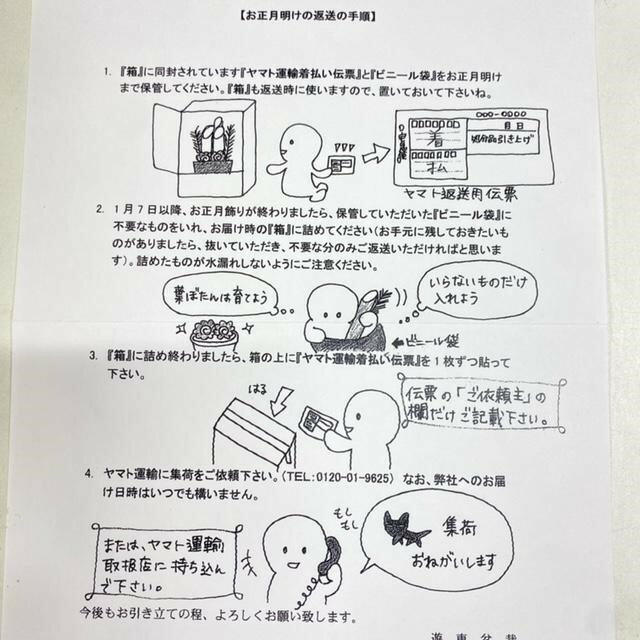 【お正月明けの返送の手順】
1. 『箱』に同封されています『ヤマト運輸着払い伝票』と『ビニール袋』をお正月明け
まで保管してください。『箱』も返送時に使いますので、置いておいて下さいね。
着
払
月 日
処分品引き上げ
ヤマト返送用伝票
2. 1月7日以降、お正月飾りが終わりましたら、保管していただいた『ビニール袋』に
不要なものをいれ、お届け時の『箱』に詰めてください（お手元に残しておきたいも
のがありましたら、抜いていただき、不要な分のみご返送いただければと思いま
す）。詰めたものが水漏れしないようにご注意ください。
葉ぼたんは育てよう
いらないものだけ
入れよう
ビニール袋
3. 『箱』に詰め終わりましたら、箱の上に『ヤマト運輸着払い伝票』を1枚ずつ貼って
下さい。
はる
伝票の「ご依頼主」の
欄だけご記載下さい。
4. ヤマト運輸に集荷をご依頼下さい。（TEL：0120-01-9625） なお、弊社へのお届
け日時はいつでも構いません。
または、ヤマト運輸
取扱店に持ち込ん
で下さい。
もし
もし
集荷
おねがいします
今後もお引き立ての程、よろしくお願い致します。